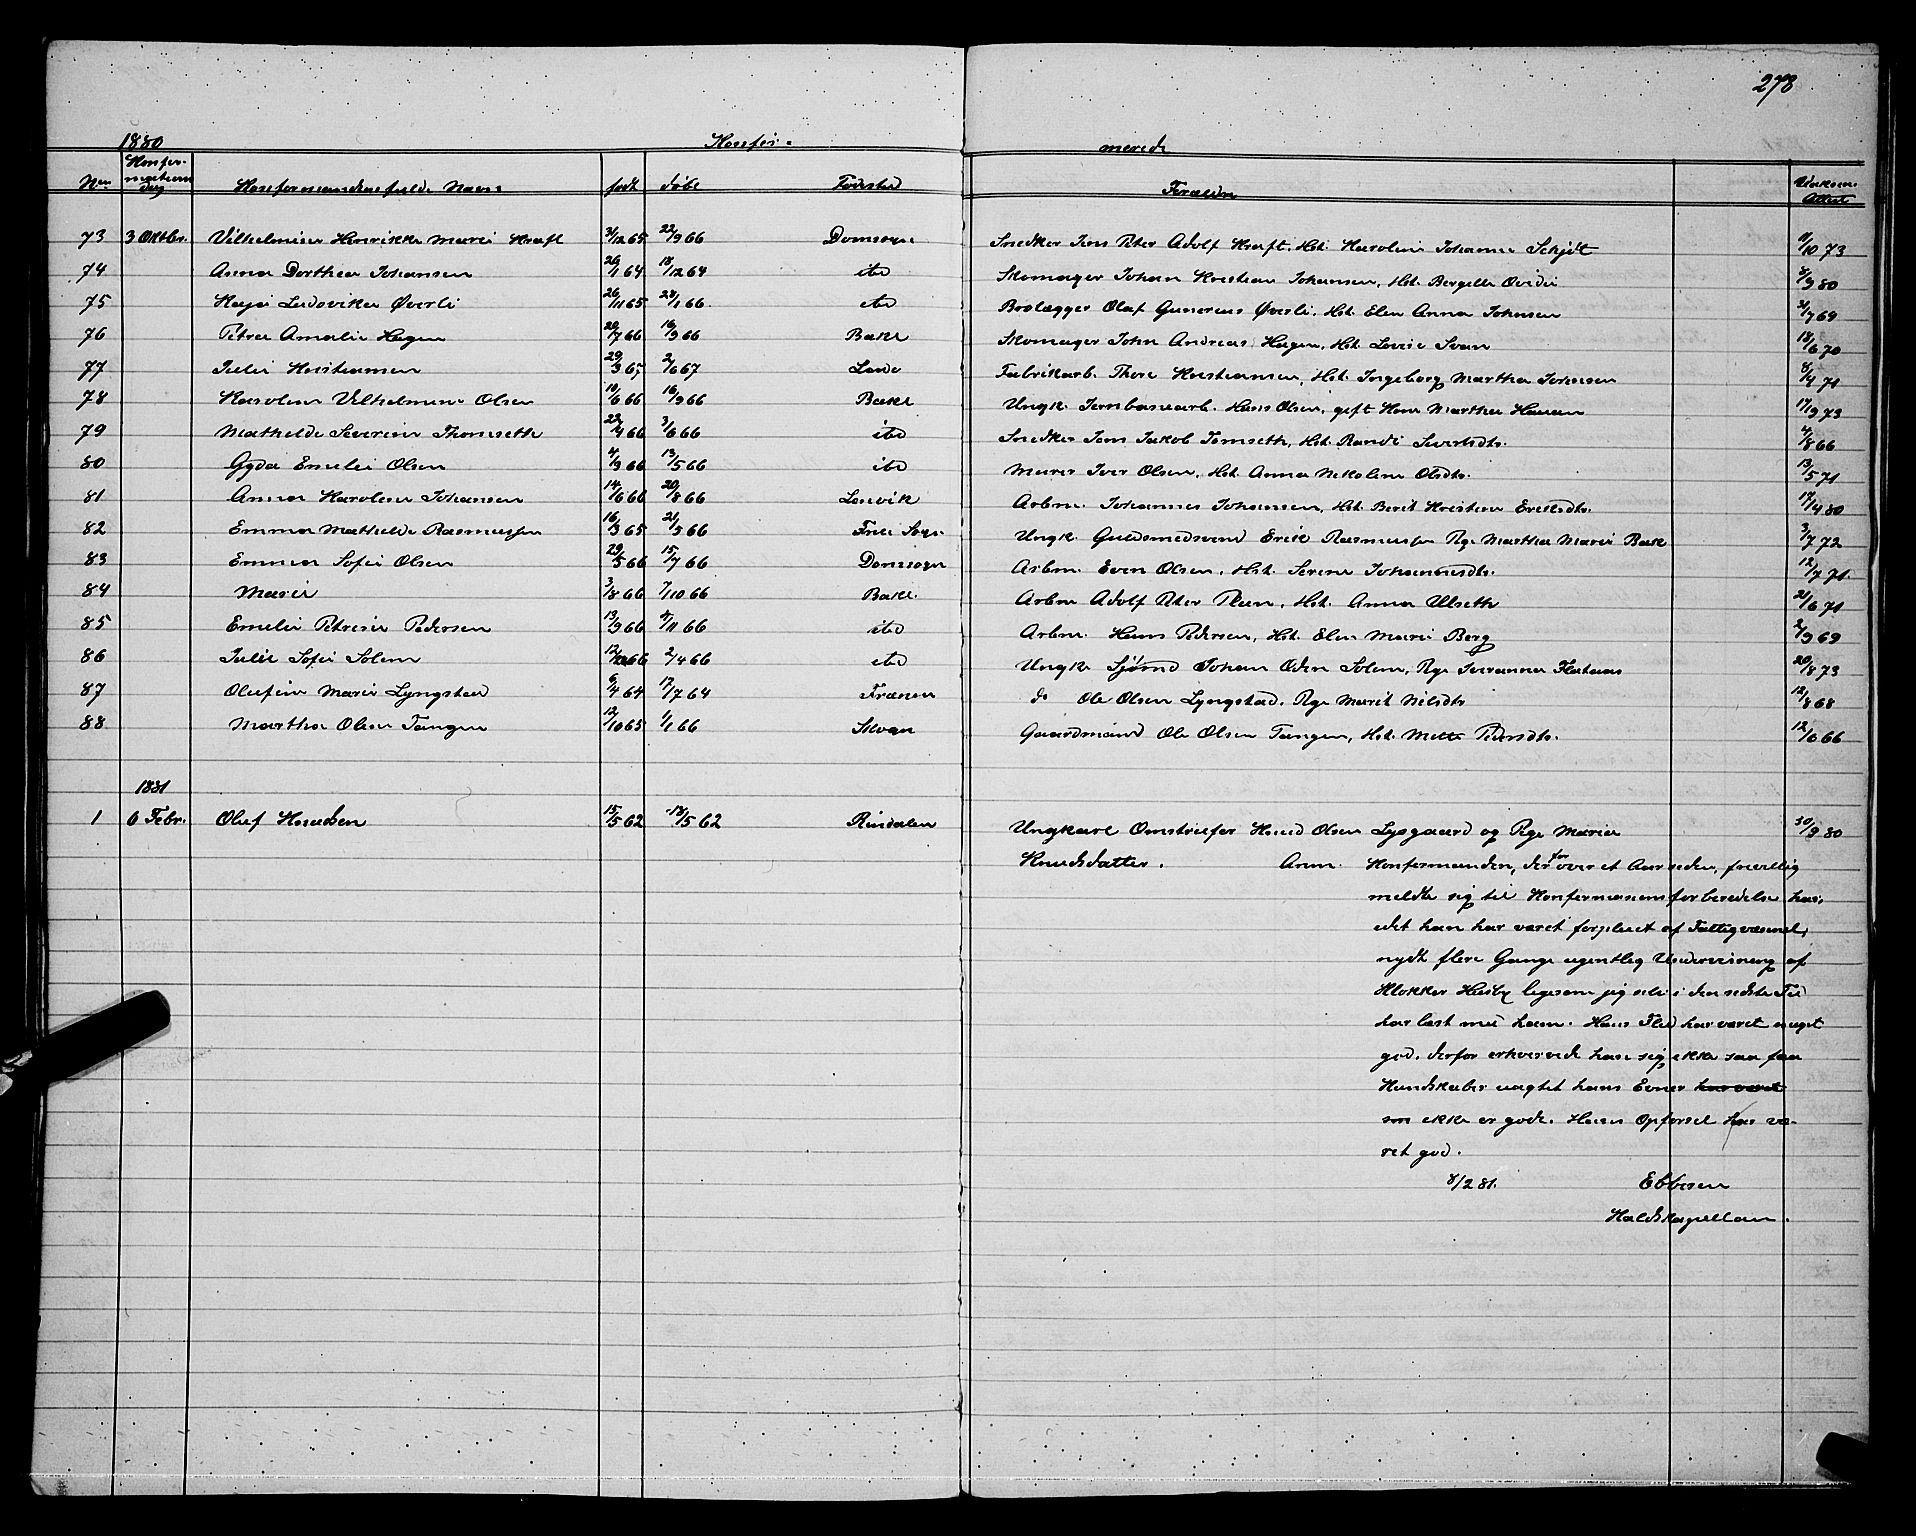 278
1880 Konfir- merede
No Konfirmations dag Konfirmandens fulde Navn født døbt Fødested Forældre Vaksin. Attest
73 3 Oktbr. Vilhelmine Henrikke Marie Kraft 31/12 65 22/9 66 Domsogn Snedker Jens Peter Adolf Kraft, Hst. Karoline Johanna Schjøt 11/10 73
74 Anna Dorthea Johansen 26/1 64 18/12 64 ito Skomager Johan Kristian Johansen, Hst. Bergitte 8/9 80
75 Kaja Ludovika Øverli 26/11 65 28/1 66 ito Brolægger Olaf Gunerius Øverli, Hst. Elen Anna Johnsen 21/7 69
76 Petra Amalie Hagen 20/7 66 16/9 66 Bakl Skomager John Andreas Hagen, Hst. Lovise Svan 18/6 70
77 Julie Kristiansen 29/3 67 2/6 67 Lade Fabrikarb. Thore Kristiansen, Hst. Ingeborg Martha Jørensen 8/4 71
78 Karoline Vilhelmine Olsen 10/6 66 16/9 66 Bakl Ungk. Jernbanearb. Hans Olsen, gift Kone Martha Hansen 17/9 73
79 Mathilde Severine Thomseth 22/4 66 3/6 66 ito Snedker Jens Jakob Tomseth, Hst. Randi Sivertsdtr. 4/8 66
80 Gyda Emilie Olsen 4/3 66 13/5 66 ito Murer Iver Olsen, Hst. Anna Nikoline Olsdtr. 13/5 71
81 Anna Karoline Johansen 14/6 66 20/8 66 Lenvik Arbm. Johannes Johansen, Hst. Berit Kristine Eriksdtr. 17/4 80
82 Emma Mathilde Rasmussen 16/3 65 21/5 66 Frue Sogn Ungk. Guldsmedsvend Erik Rasmussen Pge Martha Marie Bak 3/7 72
83 Emma Sofie Olsen 29/5 66 15/7 66 Domsogn Arbm. Even Olsen, Hst. Serine Johannesdtr. 12/7 71.
84 Marie 3/8 66 7/10 66 Bakl. Arbm Adolf Peter Pleen, Hst. Anna Ulseth 21/6 71
85 Emilie Petrine Pedersen 13/9 66 4/11 66 ito Arbm. Hans Pedersen, Hst. Elen Marie Berg 2/9 69
86 Julie Sofie Solem 12/2 66 2/4 66 ito Ungk. Sjømd Johan Odin Solem, Pge Susanna Flataas 20/8 73
87 Olufine Marie Lyngstad 6/4 64 17/7 64 Frænen do Ole Olsen Lyngstad, Pge Marit Nilsdtr 12/8 68
88 Martha Oline Tangen 12/10 65 1/1 66 Skogn Gaardmand Ole Olsen Tangen, Hst. Mette Pedersdtr. 12/6 66
1881
1 6 Febr. Oluf Knudsen 15/5 62 18/5 62 Rindalen Ungkarl Omstreifer Knud Olsen Lysgaard og Pge Marie 30/9 80
Knudsdatter. Anm. Konfirmanden, der for over et Aar siden, frivillig
meldte sig til Konfirmasionsforberedelse har,
idet han har været forpleiet af Fattigvæsnet,
nydt flere Gange ugentlig Undervisning af
Klokker Husby ligesom jeg selv i den sidste Tid
har læst med ham. Hans Flid har været meget
god, derfor erhvervede han sig ikke saa faa
Kundskaber uagtet hans Evner har været
som ikke er gode. Hans Opførsel har væ-
ret god.
8/2 81. Ebbesen
Haldskapellan.